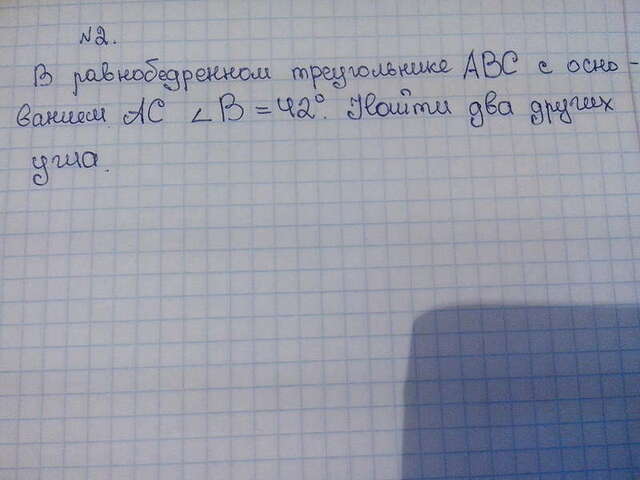 №2.
В равнобедренном треугольнике ABC с осно-
ванием AC ∠B = 42°. Найти два других
угла.